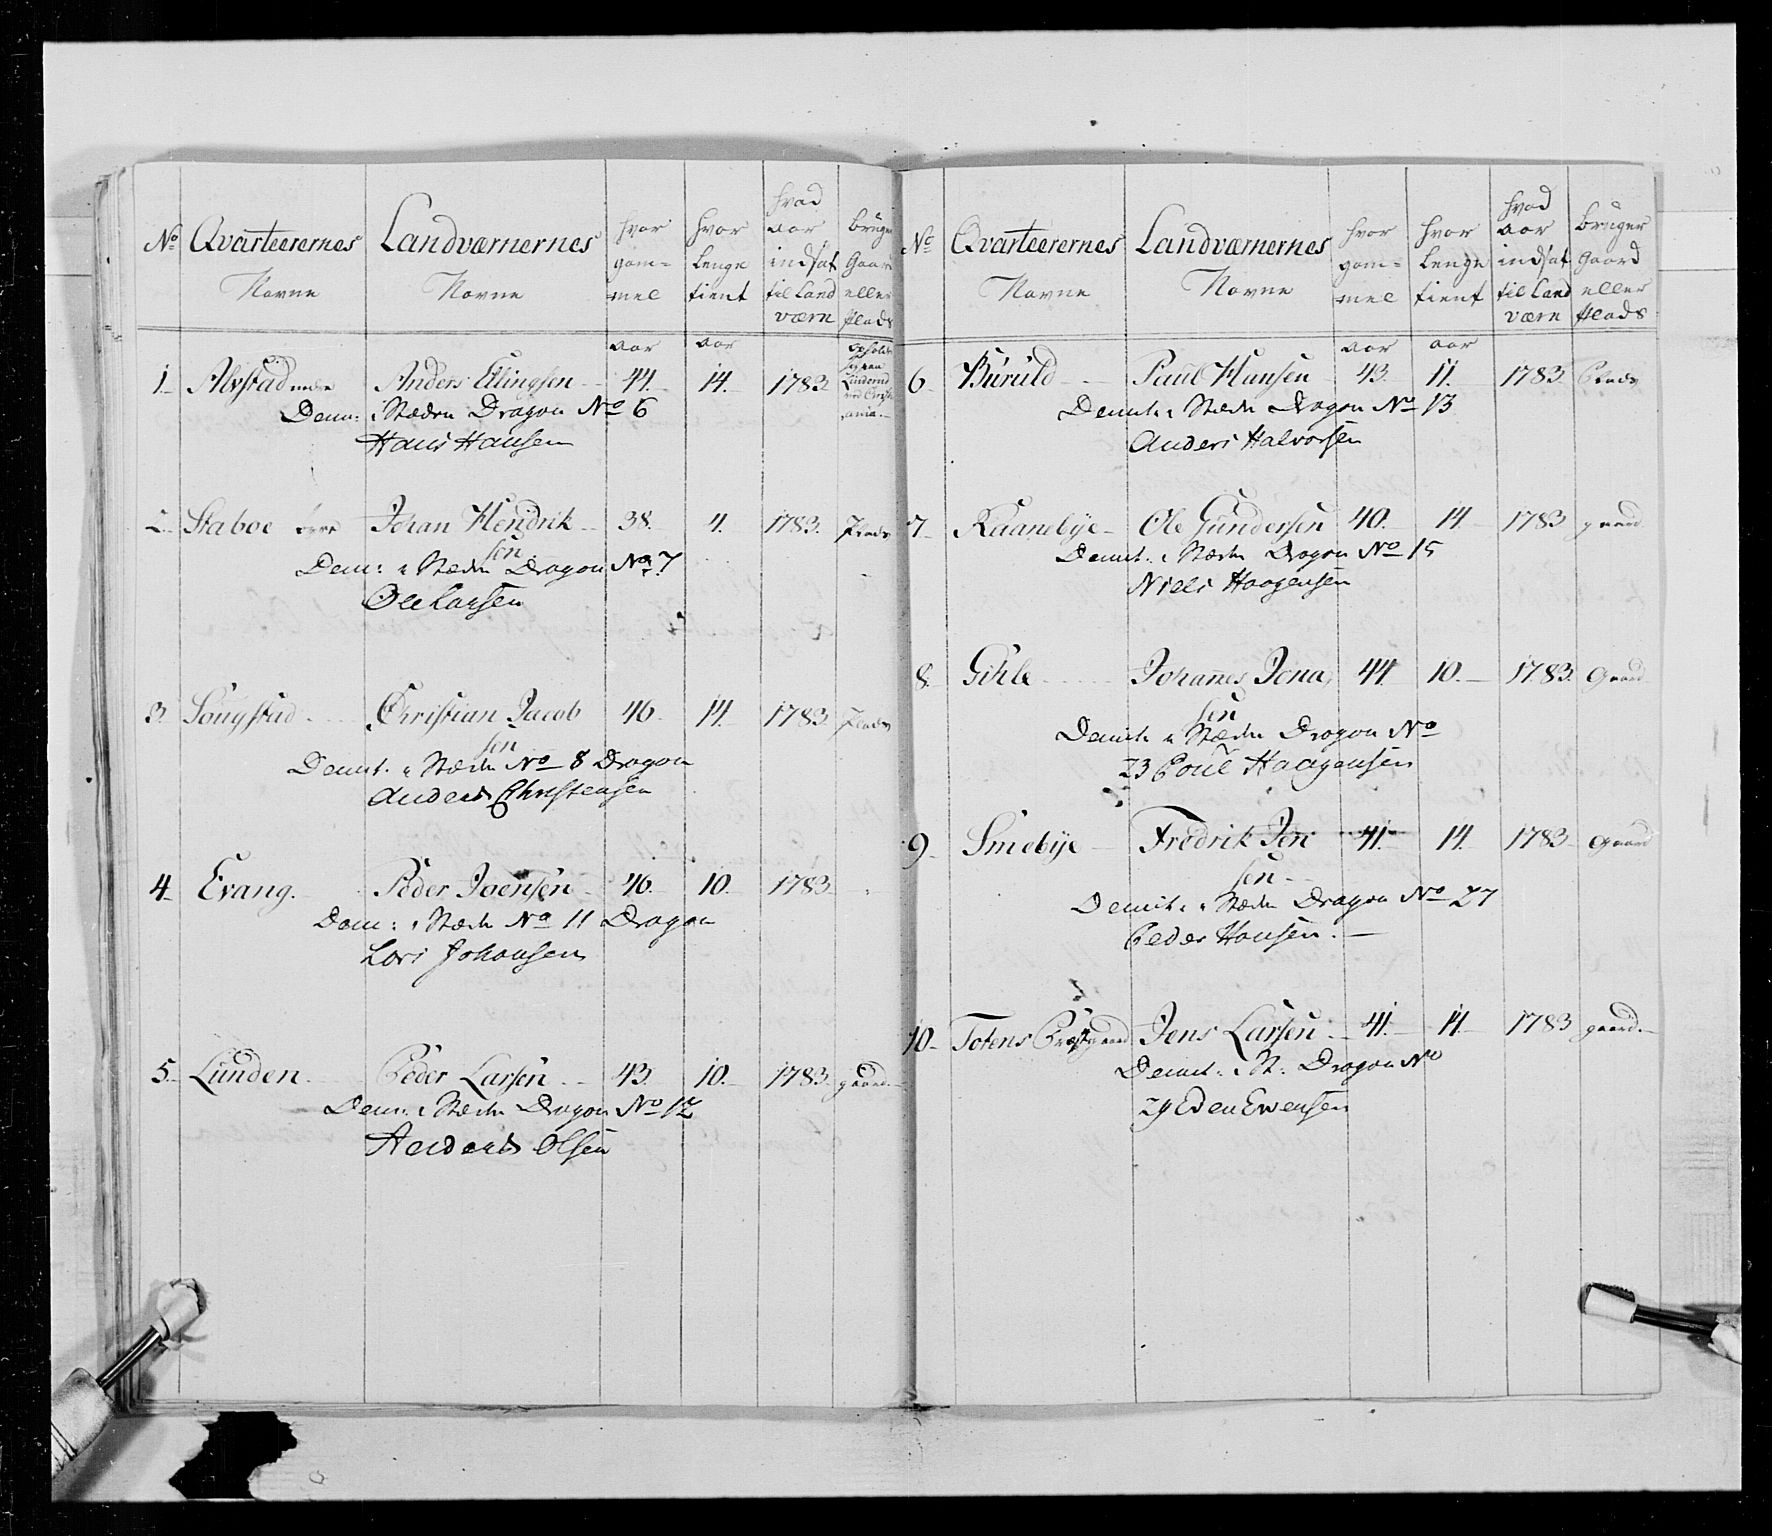 No Qvarteerernes Navne
Landværnernes Navne
hvor gam=mel
hvor lenge tient
hvad aar indsat til Land værn
bruger Gaard eller Plads
aar aar
1. Alfstad nedre Anders Ellingsen 44. 14. 1783 opholder sig paa ved Christiania.
Dem: i Stæden Dragon No 6
Hans Hansen
2. Staboe øvre Johan Hendrik 38. 4. 1783. Plads
sen
Dem: i Stæden Dragon No 7
Ole Larsen
3. Sougstad Christian Jacob 46. 14. 1783 Plads
sen
Demit. i Stæden No 8 Dragon
Anders Christensen
4. Evang. Peder Joensen 46. 10. 1783
Dem: i Stæden No 11 Dragon
Lars Johansen
5. Lunden Peder Larsen 43. 10. 1783. gaard
Dem: i Stæden Dragon No 12
Anders Olsen
No Qvarteerernes Navne
Landværnernes Navne
hvor gam=mel
hvor lenge tient
hvad aar indsat til Land værn
bruger Gaard eller Plads
aar aar
6. Buruld Paul Hansen 43. 11. 1783. Plads
Demit. i Stæden Dragon No 13
Anders Halvorsen
7. Raanebye Ole Gundersen 40. 14. 1783 gaard
Demit. i Stæden Dragon No 15
Niels Haagensen
8. Gihle Johannes Jona 44 10. 1783. Gaard
sen
Demit. i Stæden Dragon No
23 Poul Haagensen
9. Smebye Fredrik Jen 41. 14. 1783 Gaard
sen
Demit. i Stæden Dragon No 27
Peder Hansen.
10. Totens Præstgaard Jens Larsen 41. 14. 1783 gaard.
Demit. i St: Dragon No
29 Eden Evensen